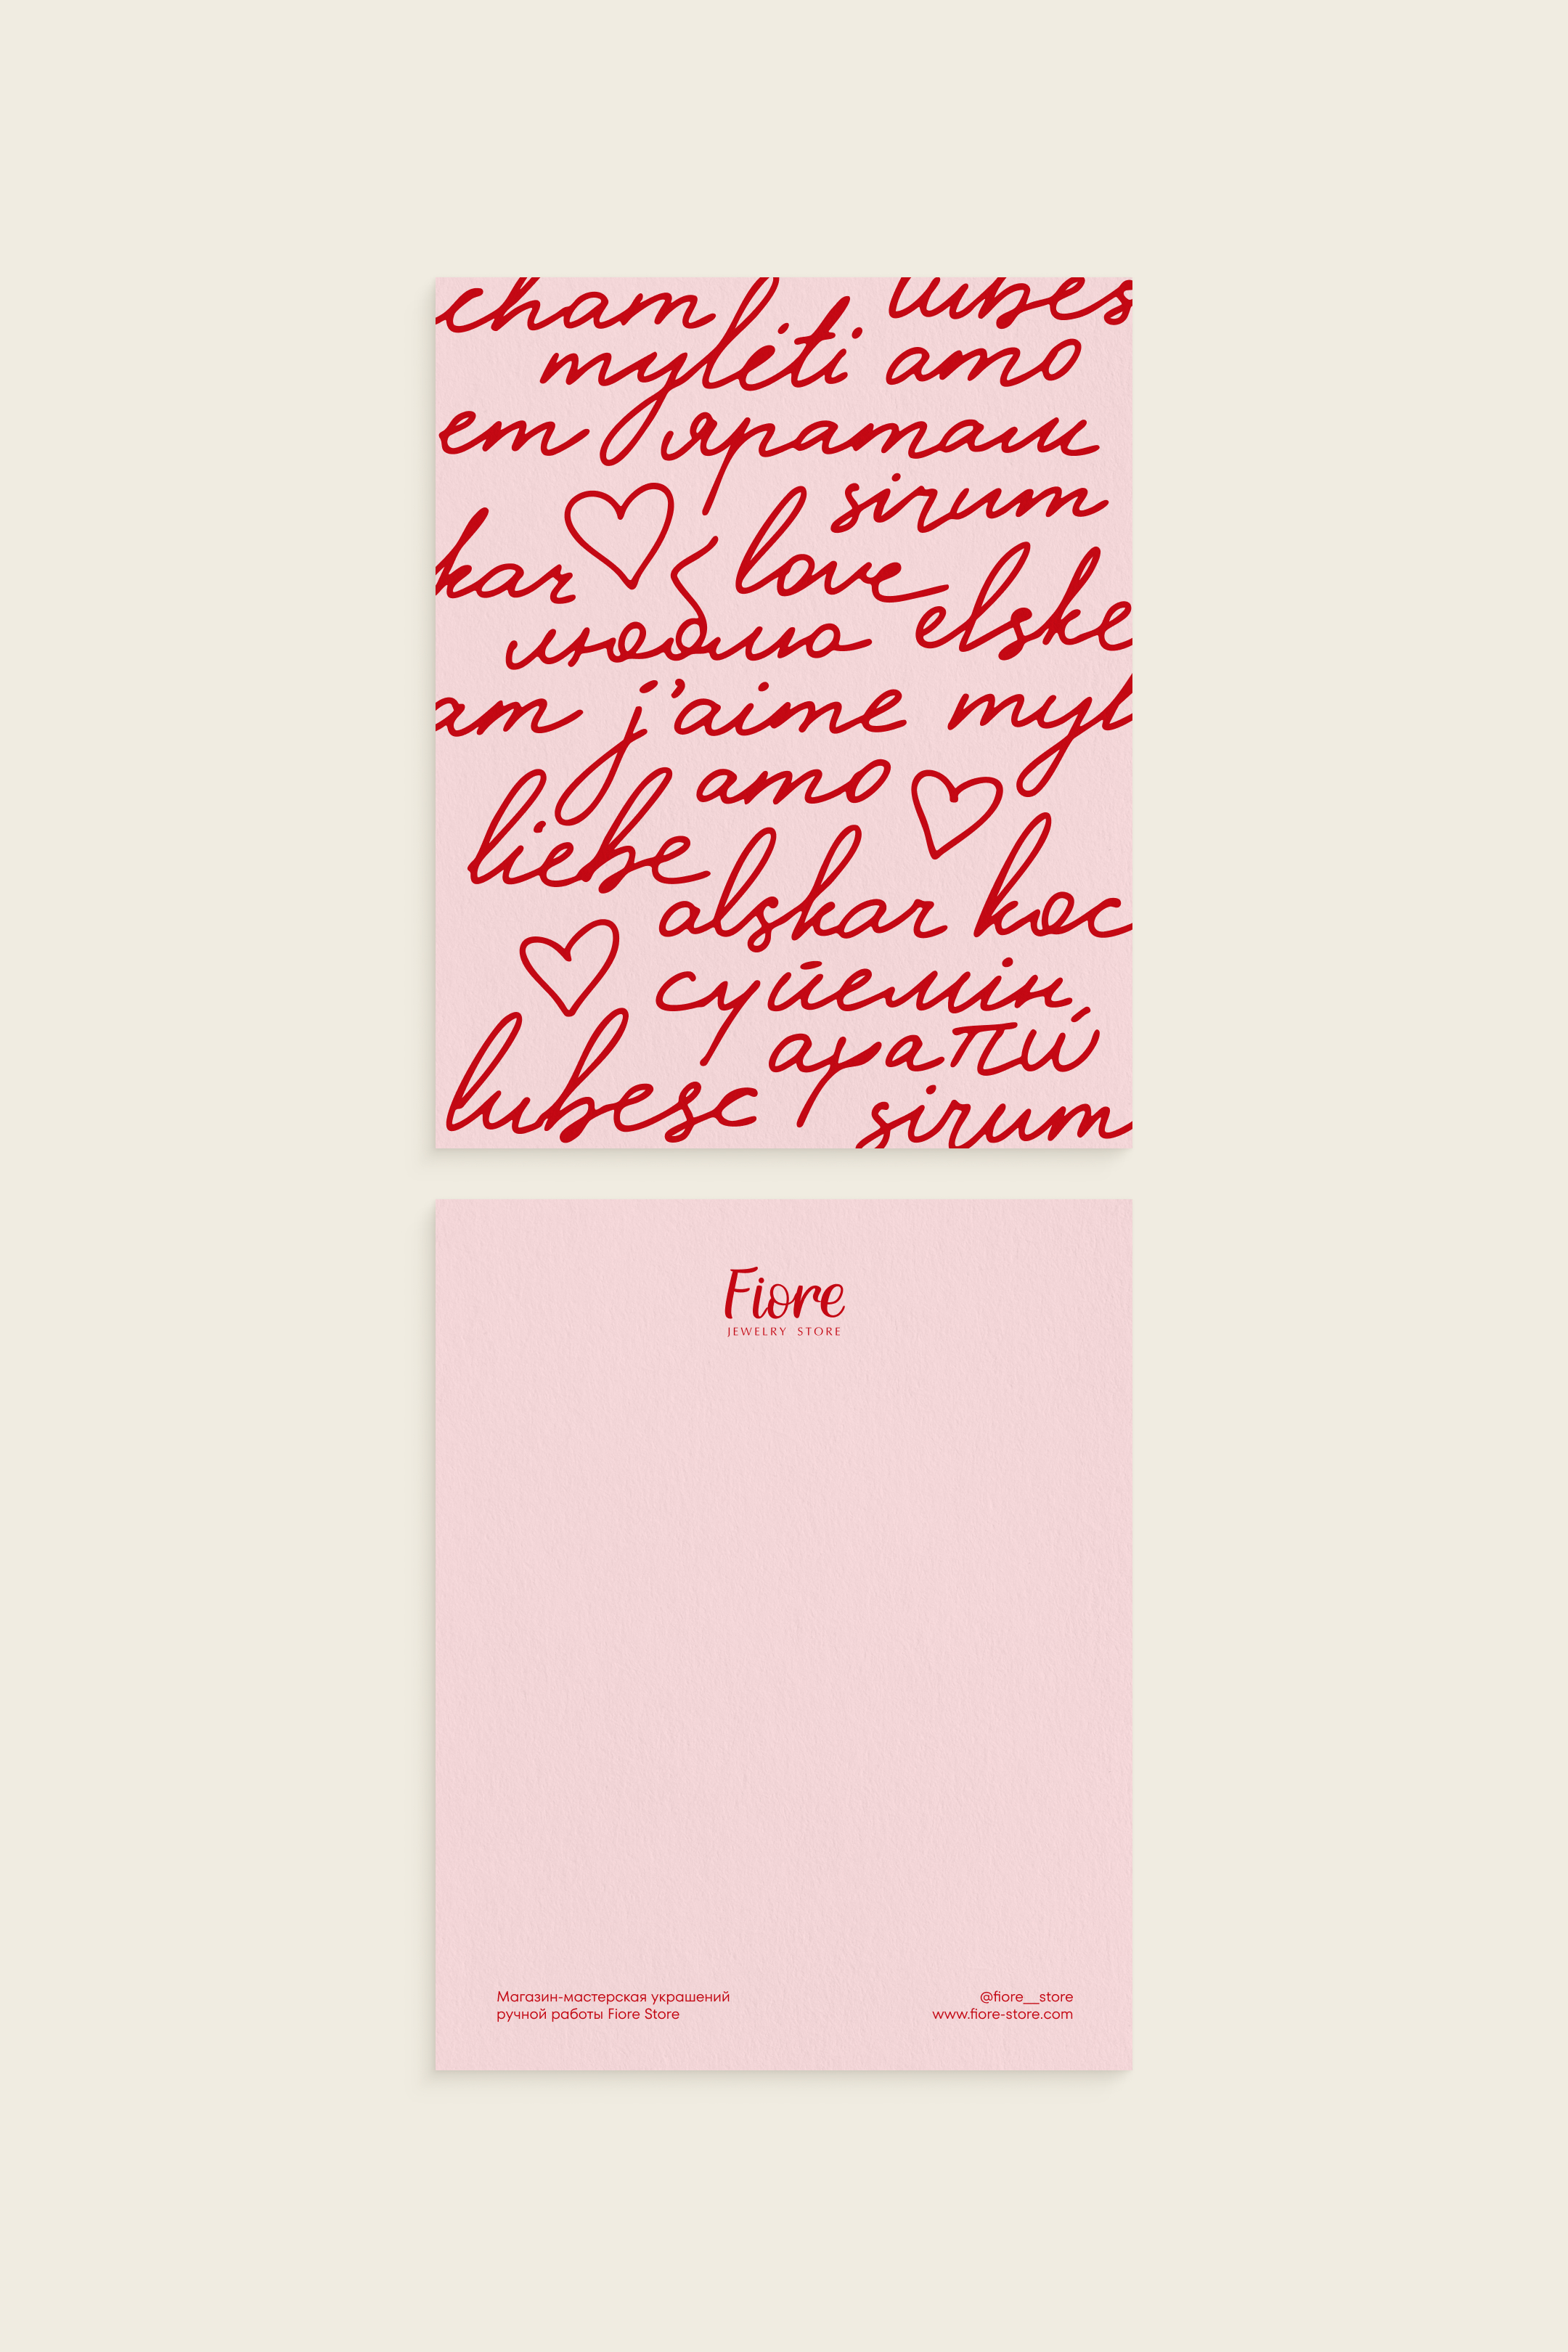 cham lubes
mylėti amo
em яратам
sirum
kar love
люблю elske
am j'aime myl
amo
liebe
alskar koc
сүйемін
αγαπώ
lubesc sirum
Fiore
JEWELRY STORE
Магазин-мастерская украшений
ручной работы Fiore Store
@fiore__store
www.fiore-store.com